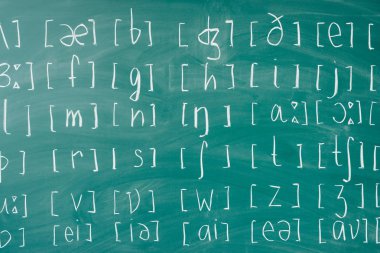 ʌ] [æ] [b] [ʤ] [ð] [e]
ɜː] [f] [g] [h] [i] [j] [
l] [m] [n] [ŋ] [ɑː] [ɔː]
p] [r] [s] [ʃ] [t] [tʃ]
uː] [v] [ʋ] [w] [z] [ʒ] [
ɒ] [ei] [iə] [ai] [eə] [aʋ]